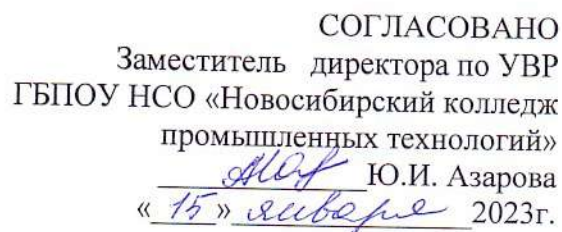 СОГЛАСОВАНО
Заместитель директора по УВР
ГБПОУ НСО «Новосибирский колледж
промышленных технологий»
Ю.И. Азарова
«15» января 2023г.